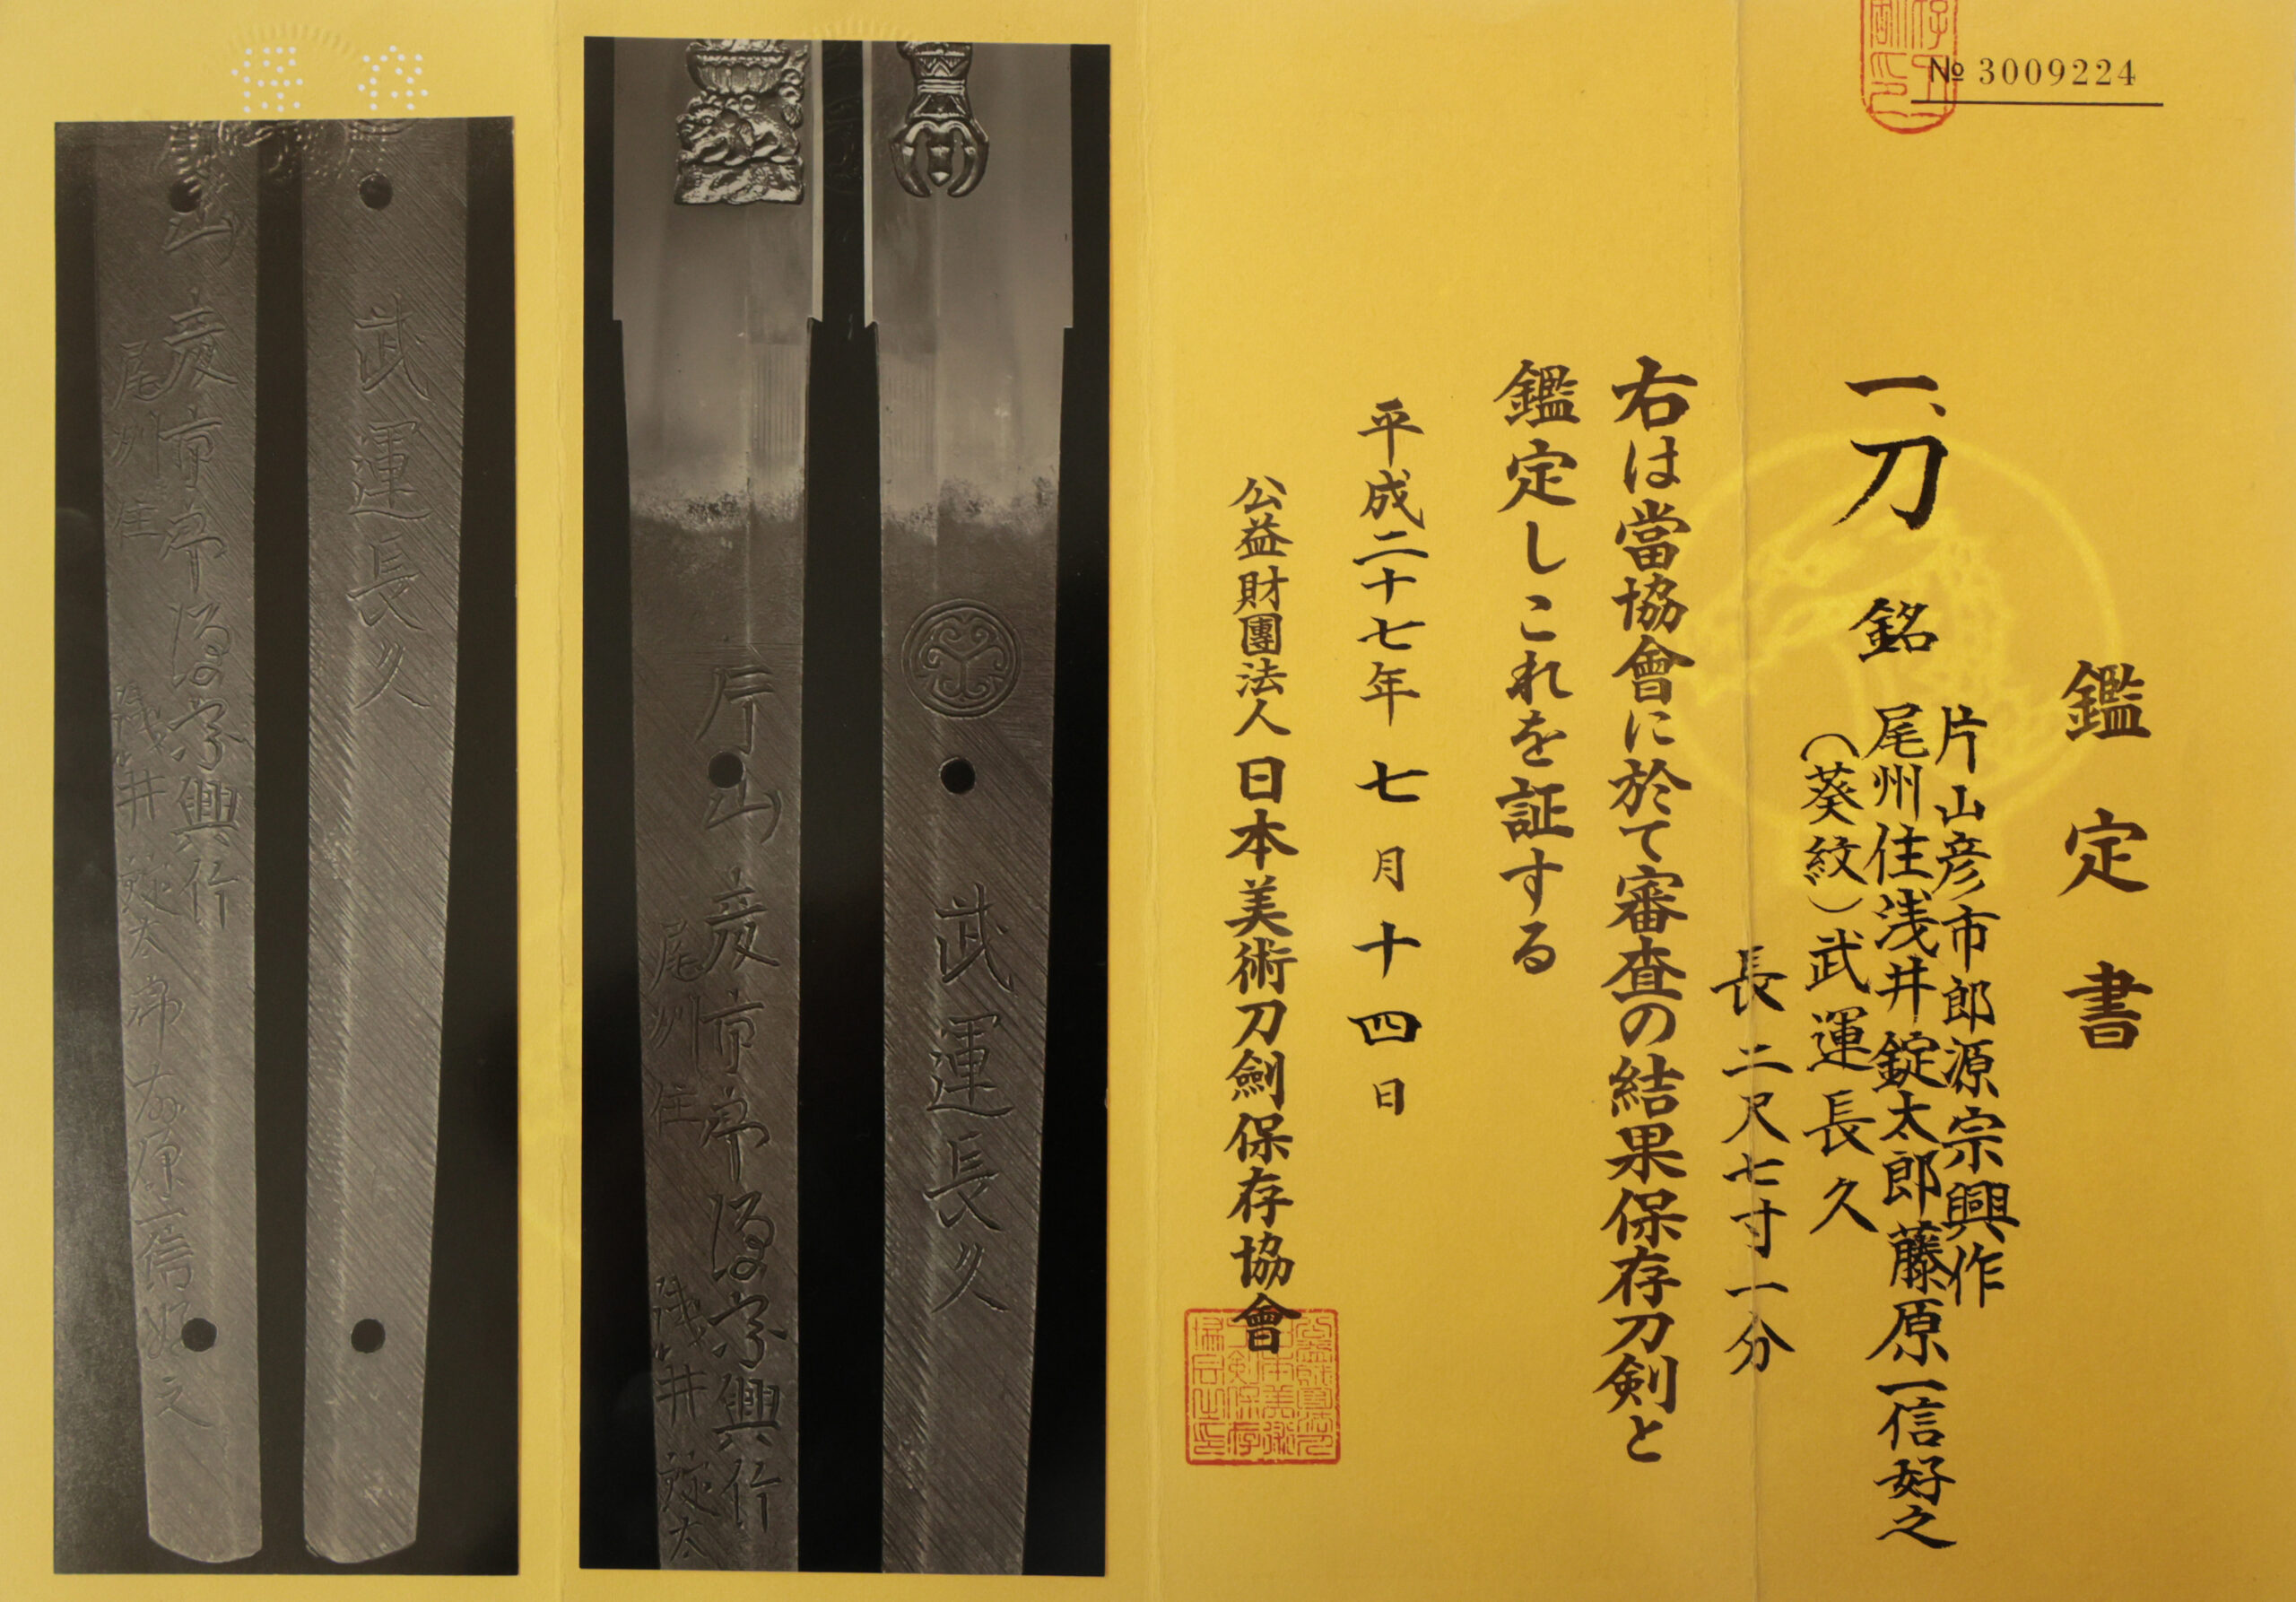 № 3009224
鑑定書
一、刀 銘
片山彦市郎源宗興作
尾州住浅井錠太郎藤原一信好之
(葵紋)武運長久
長二尺七寸一分
右は當協會に於て審査の結果保存刀剣と
鑑定しこれを証する
平成二十七年七月十四日
公益財團法人日本美術刀劍保存協會
武運長久
片山彦市郎源宗興作
尾州住 浅井錠太
保存
武運長久
山彦市郎源宗興作
尾州住 浅井錠太郎藤原一信好之